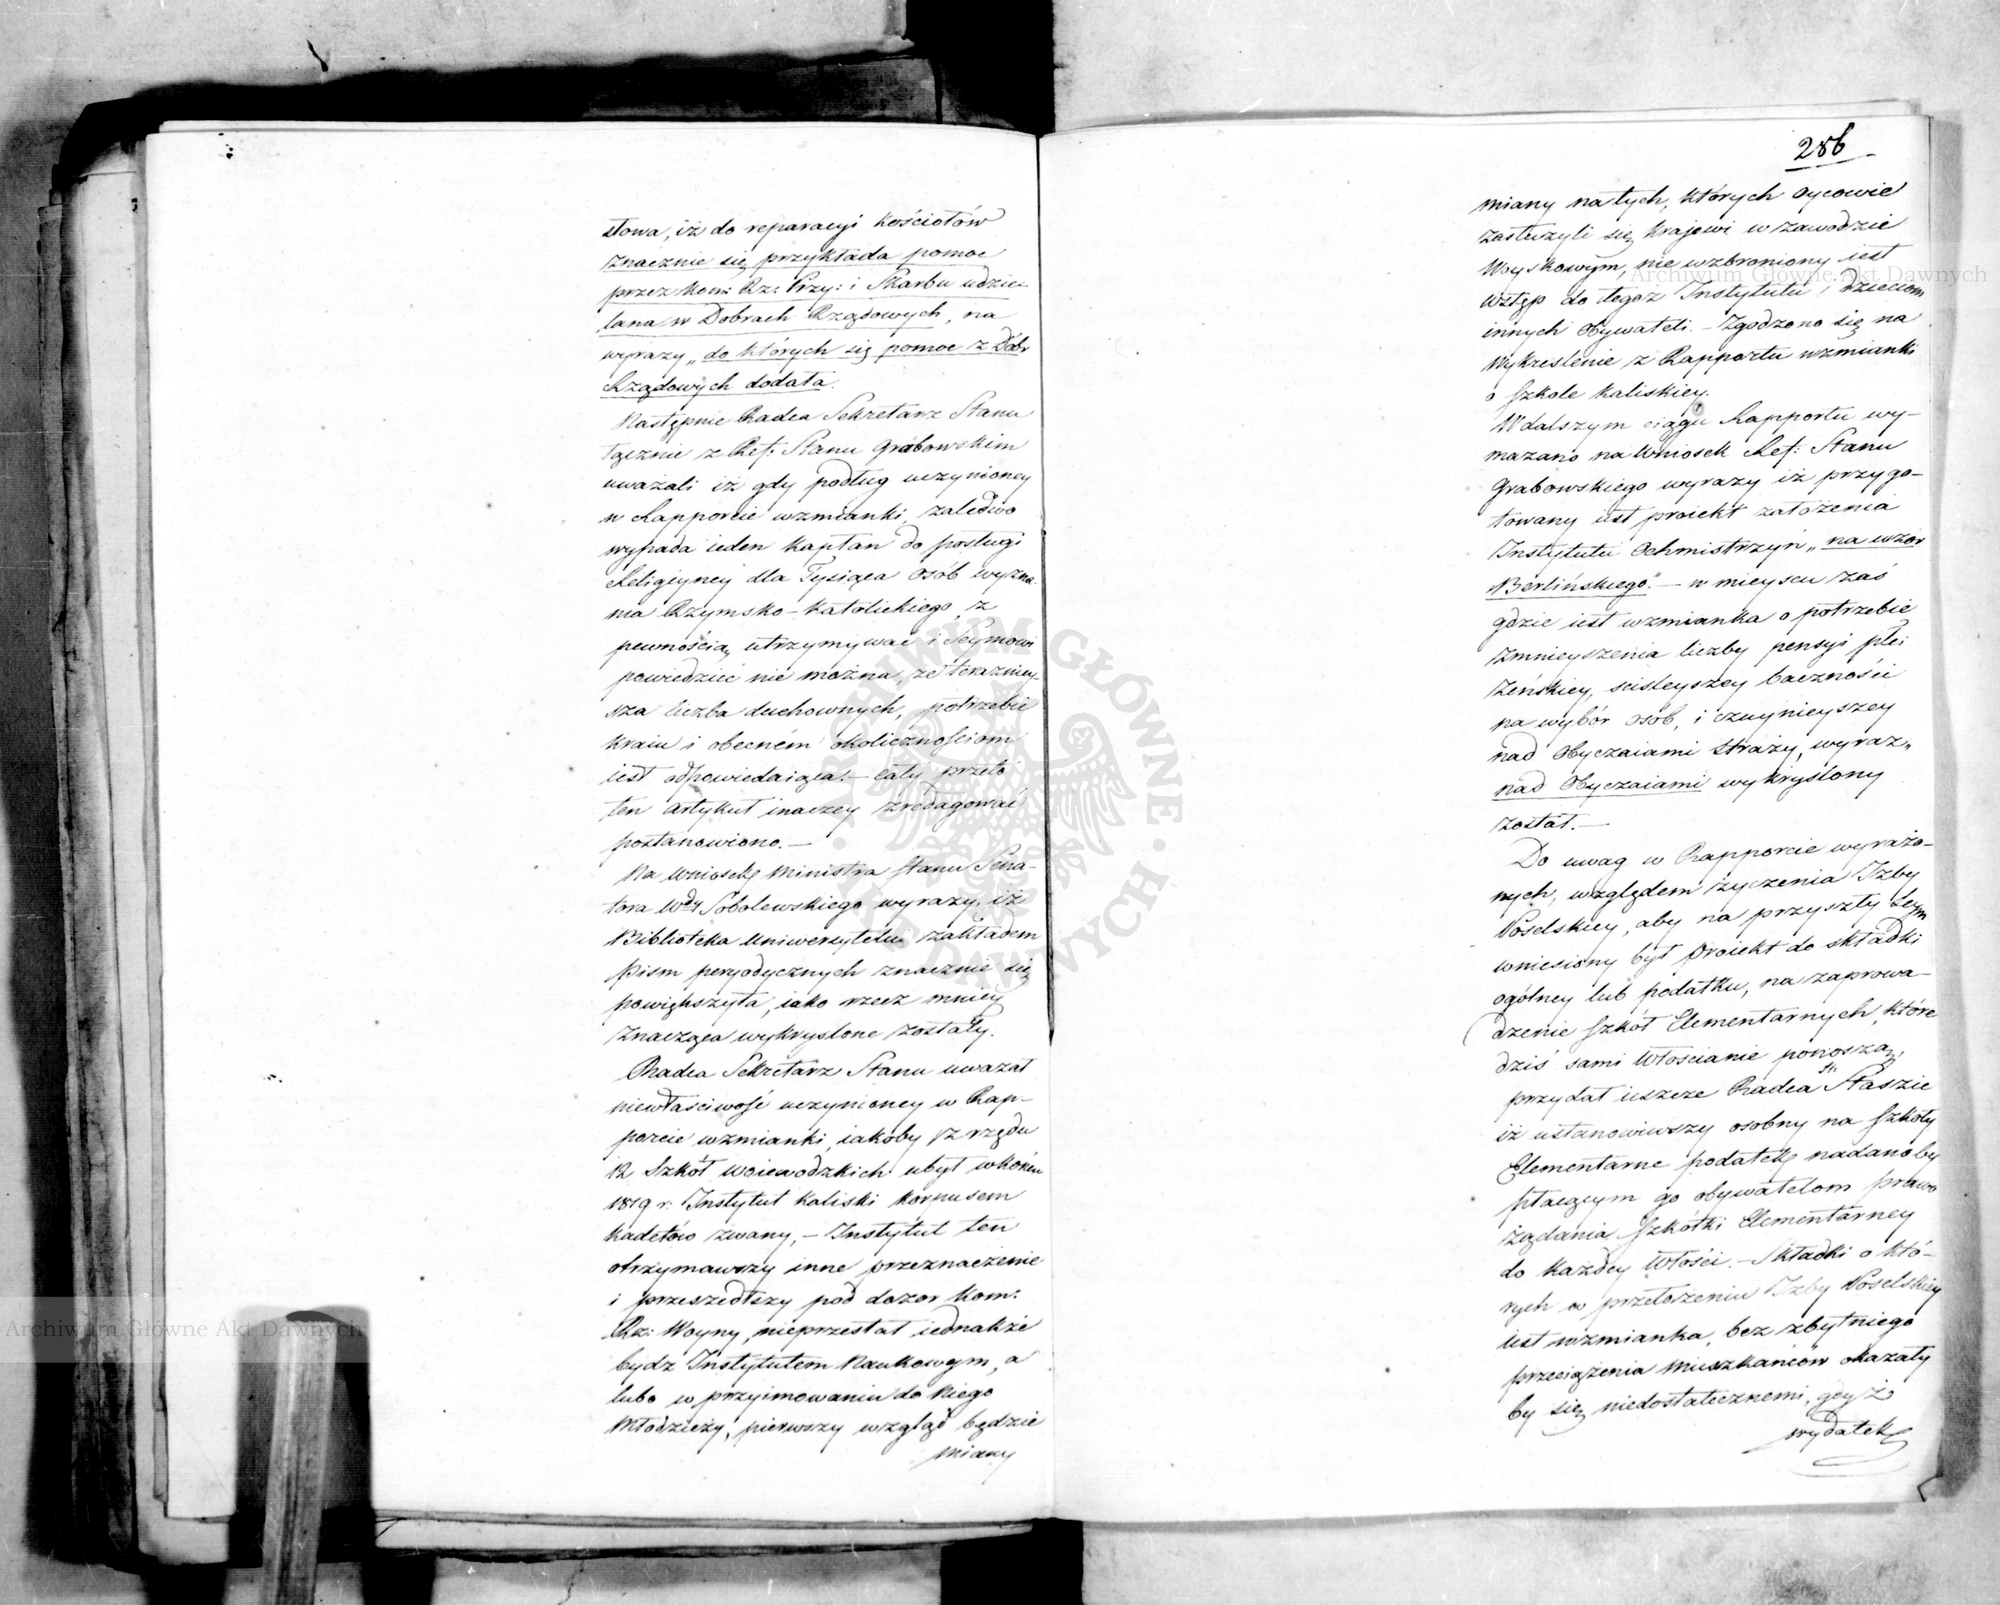 słowa, iż do reparacyi kościołów
znacznie się przykłada pomoc
przez Kom: Rz: Przy: i Skarbu udzie-
lana w Dobrach Rządowych, na
wyrazy „do których się pomoc z Dóbr
Rządowych dodała.
Następnie Radca Sekretarz Stanu
łącznie z Ref: Stanu Grabowskim
uważali iż gdy podług uczynioney
w Rapporcie wzmianki, zaledwo
wypada ieden Kapłan do posługi
Religiyney dla Tysiąca osób wyzna-
nia Rzymsko-Katolickiego, z
pewnością utrzymywać i Seymowi
powiedzieć nie można, że teraźniey-
sza liczba duchownych, potrzebie
Kraiu i obecném okolicznościom
iest odpowiedaiąca. – cały przeto
ten artykuł inaczey zredagować
postanowiono. –
Na wniosek Ministra Stanu Sena-
tora Wdy Sobolewskiego wyrazy, iż
Biblioteka Uniwersytetu zakładem
pism peryodycznych znacznie się
powiększyła, iako rzecz mniey
znacząca wykryslone zostały.
Radca Sekretarz Stanu uważał
niewłaściwość uczynioney w Rap-
porcie wzmianki, iakoby z rzędu
12 Szkół woiewodzkich ubył w końcu
1819 r. Instytut Kaliski Korpusem
Kadetów zwany, – Instytut ten
otrzymawszy inne przeznaczenie
i przeszedłszy pod dozor Kom:
Rz: Woyny, nieprzestał iednakże
bydz Instytutem Naukowym, a
lubo w przyimowaniu do niego
Młodzieży, pierwszy wzgląd będzie
miany
286
miany na tych, których oycowie
zasłużyli się Krajowi w zawodzie
Woyskowym, nie wzbroniony iest
wstęp do tegoż Instytutu, dzieciom
innych Obywateli. – Zgodzono się na
wykreslenie z Rapportu wzmianki
o Szkole Kaliskiey.
W dalszym ciągu Rapportu wy-
mazano na wniosek Ref: Stanu
Grabowskiego wyrazy iż przygo-
towany iest proiekt założenia
Instytutu Ochmistrzyń „na wzór
Berlińskiego." – w mieyscu zaś
gdzie iest wzmianka o potrzebie
zmnieyszenia liczby pensyi płci
żeńskiey, scisleyszey baczności
na wybór osób, i czuynieyszey
nad Obyczaiami straży, wyraz „
nad Obyczaiami wykryślony
został. –
Do uwag w Rapporcie wyrażo-
nych, względem życzenia Izby
Poselskiey, aby na przyszły Seym
wniesiony był proiekt do składki
ogólney lub podatku, na zaprowa-
dzenie Szkół Elementarnych, które
dziś sami Włościanie ponoszą,
przydał ieszcze Radca St: Staszic
iż ustanowiwszy osobny na Szkoły
Elementarne podatek nadanoby
płacącym go obywatelom prawo
żądania Szkółki Elementarney
do każdey Włości. – Składki o któ-
rych w przełożeniu Izby Poselskiey
iest wzmianka, bez zbytniego
przeciążenia Mieszkańców okazały
by się niedostatecznemi, gdyż
wydatek
Archiwum Główne Akt Dawnych
Archiwum Główne Akt Dawnych
ARCHIWUM GŁÓWNE AKT DAWNYCH